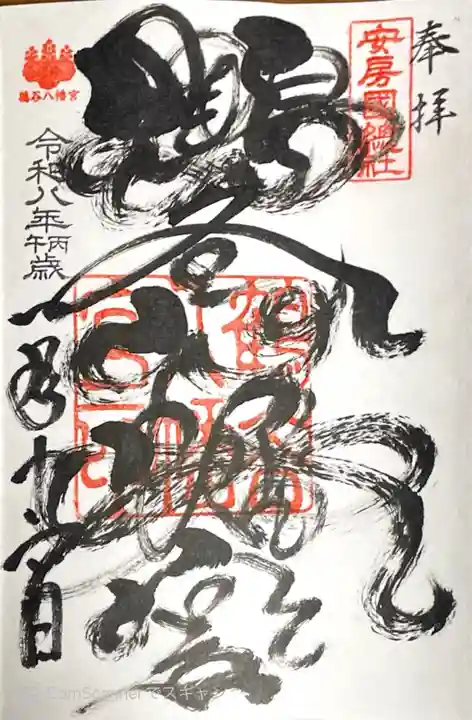 奉拝
安房國總社
鶴谷八幡宮
鶴谷八幡宮
令和八年丙午歳
CamScannerでスキャン